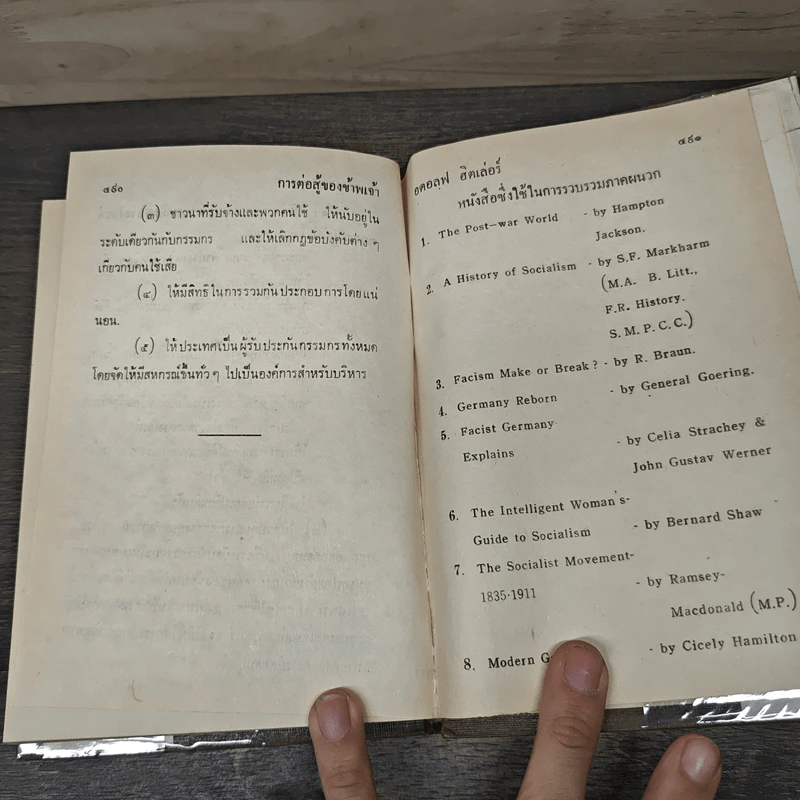 ๔๙๐
การต่อสู้ของข้าพเจ้า
(๓) ชาวนาที่รับจ้างและพวกคนใช้ ให้นับอยู่ใน
ระดับเดียวกันกับกรรมกร และให้เลิกกฎข้อบังคับต่าง ๆ
เกี่ยวกับคนใช้เสีย
(๔) ให้มีสิทธิในการรวมกันประกอบการโดยแน่
นอน.
(๕) ให้ประเทศเป็นผู้รับประกันกรรมกรทั้งหมด
โดยจัดให้มีสหกรณ์ขึ้นทั่ว ๆ ไปเป็นองค์การสำหรับบริหาร
อดอลฟ ฮิตเล่อร์
๔๙๑
หนังสือซึ่งใช้ในการรวบรวมภาคผนวก
1. The Post-war World - by Hampton
Jackson.
2. A History of Socialism - by S.F. Markharm
(M.A. B. Litt.,
F.R. History.
S.M.P.C.C.)
3. Facism Make or Break? - by R. Braun.
4. Germany Reborn - by General Goering.
5. Facist Germany
Explains - by Celia Strachey &
John Gustav Werner
6. The Intelligent Woman's-
Guide to Socialism - by Bernard Shaw
7. The Socialist Movement-
1835-1911 - by Ramsey-
Macdonald (M.P.)
8. Modern - by Cicely Hamilton